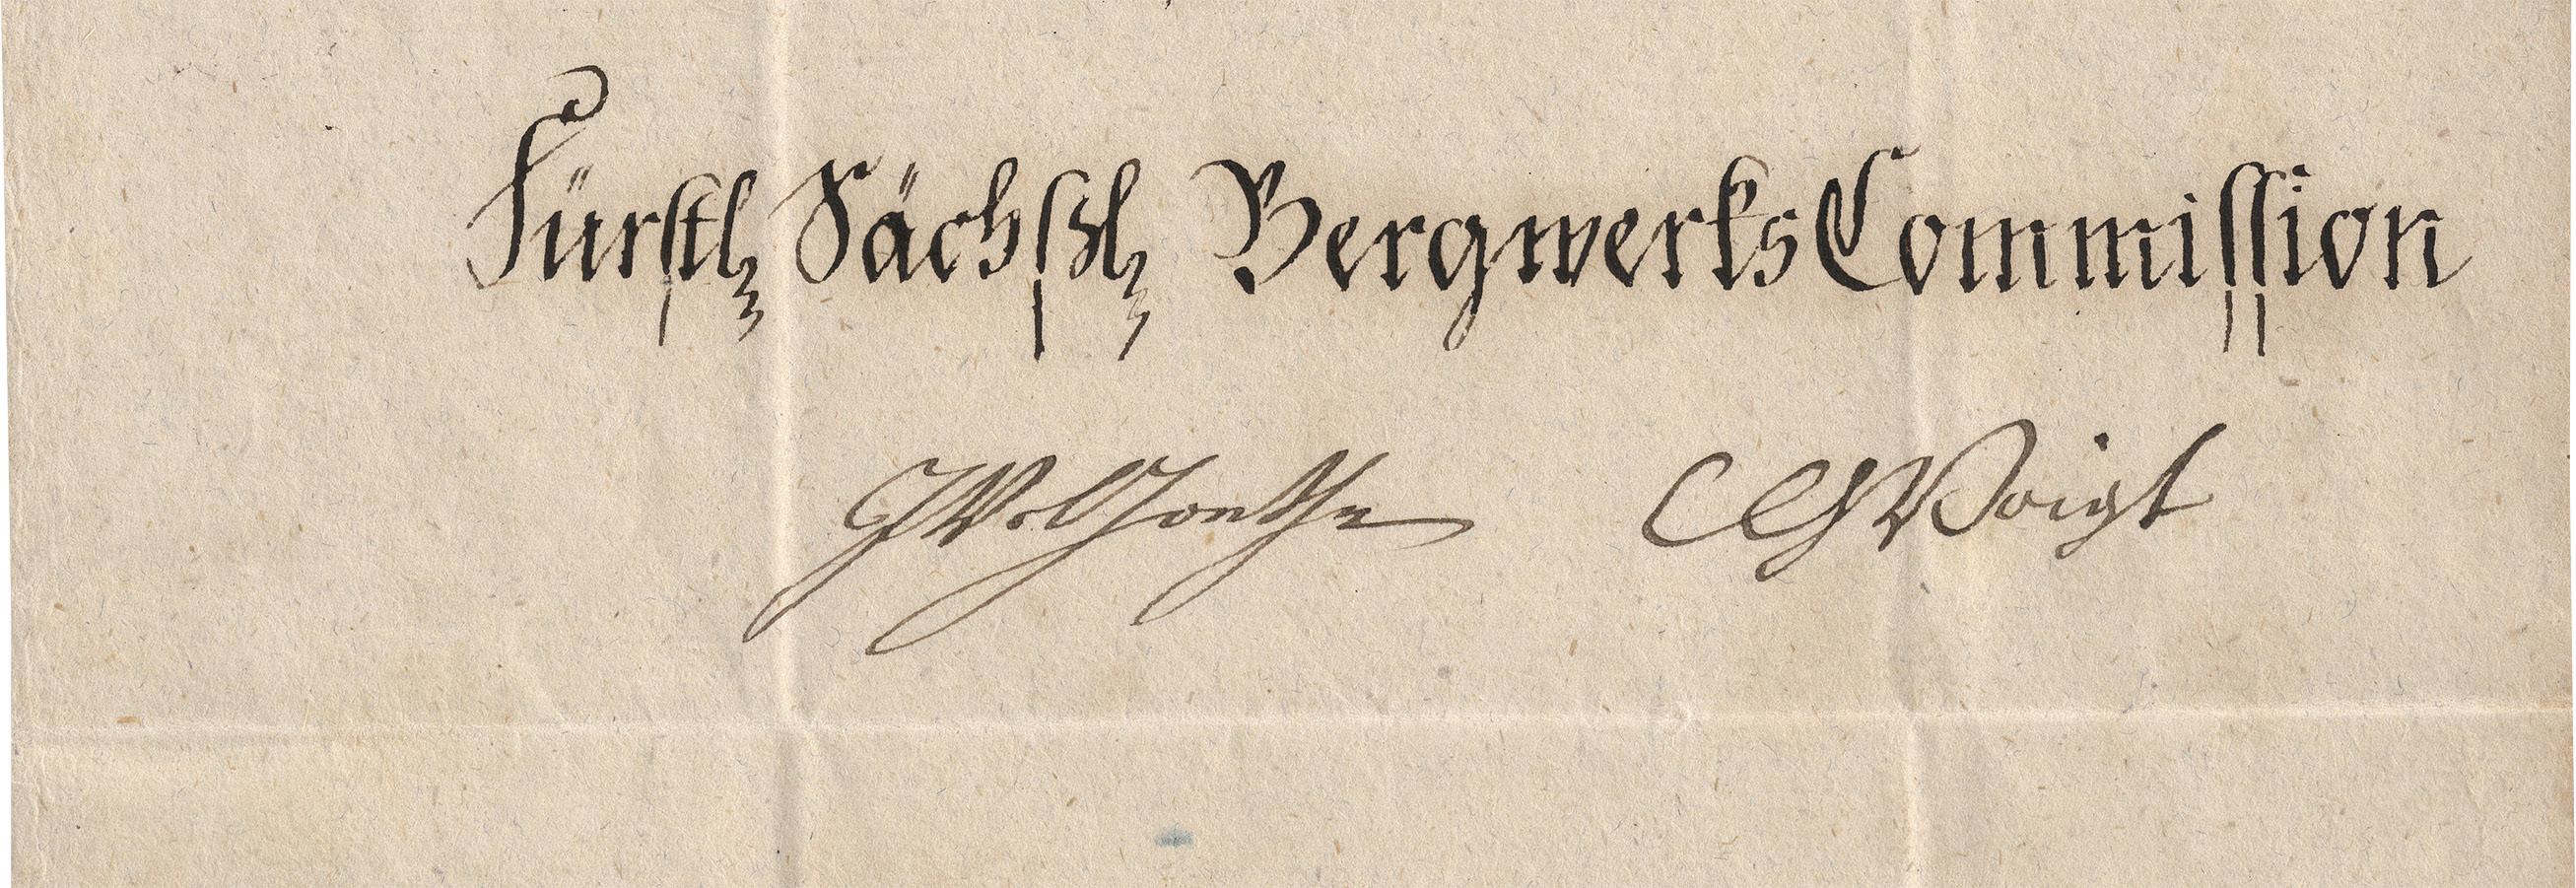 Fürstl. Sächßl. BergwerksCommission
JWvGoethe CGVoigt